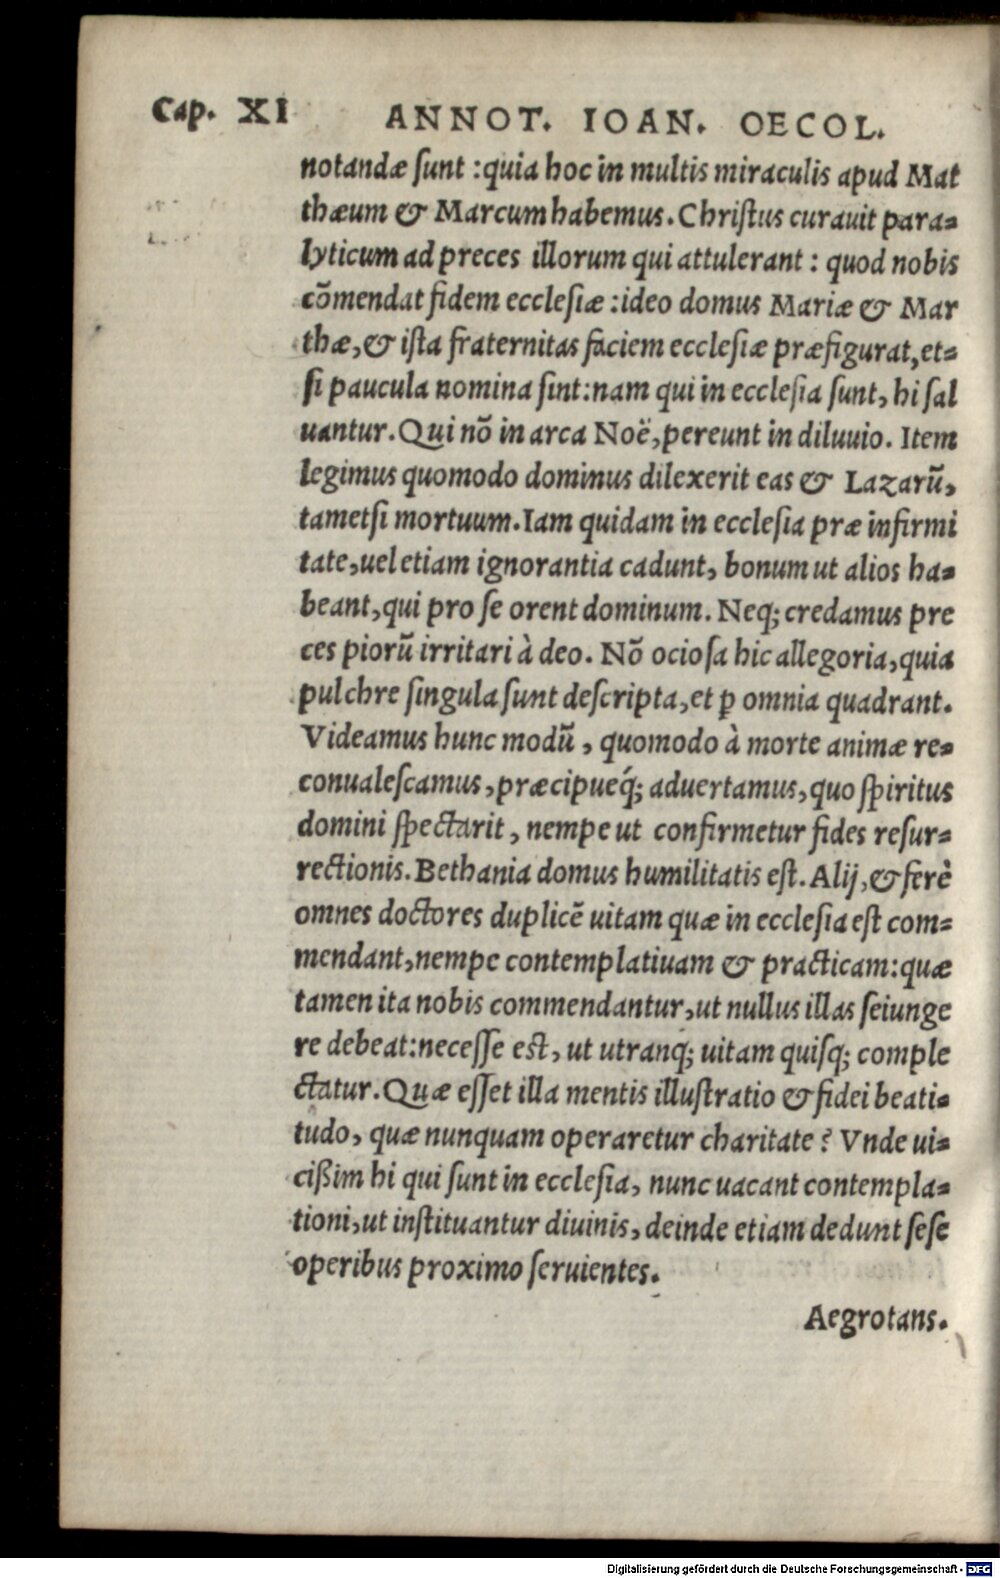 Cap. XI ANNOT. IOAN. OECOL.
notandæ ſunt :quia hoc in multis miraculis apud Mat
thæum & Marcum habemus. Chriſtus curauit para-
lyticum ad preces illorum qui attulerant : quod nobis
cōmendat fidem eccleſiæ :ideo domus Mariæ & Mar
thæ,& iſta fraternitas faciem eccleſiæ præfigurat,et-
ſi paucula nomina ſint:nam qui in eccleſia ſunt, hi ſal
uantur. Qui nō in arca Noë,pereunt in diluuio. Item
legimus quomodo dominus dilexerit eas & Lazarū,
tametſi mortuum. Iam quidam in eccleſia præ infirmi
tate,uel etiam ignorantia cadunt, bonum ut alios ha-
beant,qui pro ſe orent dominum. Neq; credamus pre
ces piorū irritari à deo. Nō ocioſa hic allegoria,quia
pulchre ſingula ſunt deſcripta,et ꝑ omnia quadrant.
Videamus hunc modū , quomodo à morte animæ re-
conualeſcamus,præcipueq́; aduertamus,quo ſpiritus
domini ſpectarit, nempe ut confirmetur fides reſur-
rectionis. Bethania domus humilitatis eſt. Alij,& ferè
omnes doctores duplicē uitam quæ in eccleſia eſt com-
mendant,nempe contemplatiuam & practicam:quæ
tamen ita nobis commendantur,ut nullus illas ſeiunge
re debeat:neceſſe eſt, ut utranq; uitam quiſq; comple
ctatur. Quæ eſſet illa mentis illuſtratio & fidei beati-
tudo, quæ nunquam operaretur charitate ? Vnde ui-
cißim hi qui ſunt in eccleſia, nunc uacant contempla-
tioni,ut inſtituantur diuinis, deinde etiam dedunt ſeſe
operibus proximo ſeruientes.
Aegrotans.
Digitalisierung gefördert durch die Deutsche Forschungsgemeinschaft - DFG